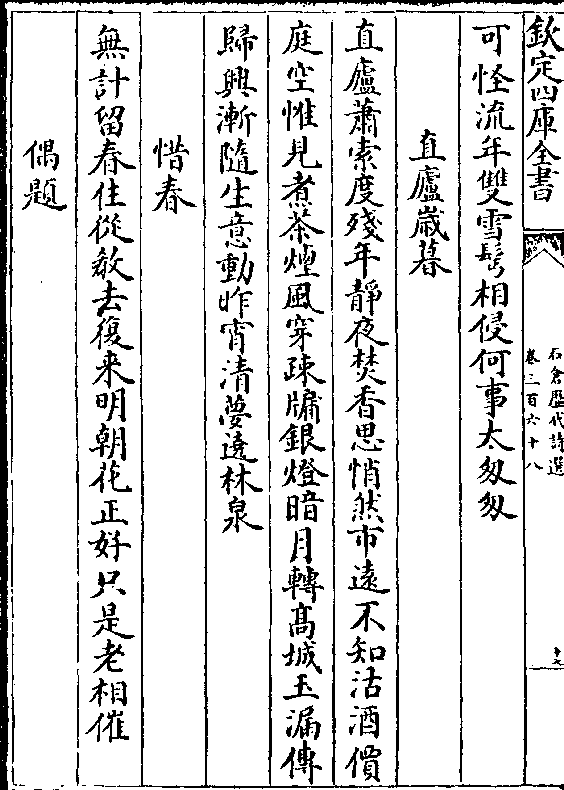 欽定四庫全書
石倉歴代詩選
卷三百六十八
十七
可怪流年雙雪髩相侵何事太匆匆
直廬嵗暮
直廬蕭索度殘年靜夜焚香思悄然市遠不知沽酒價
庭空惟見煮茶煙風穿疎牖銀燈暗月轉髙城玉漏傳
歸興漸隨生意動昨宵清夢遶林泉
惜春
無計留春住從教去復來明朝花正好只是老相催
偶題